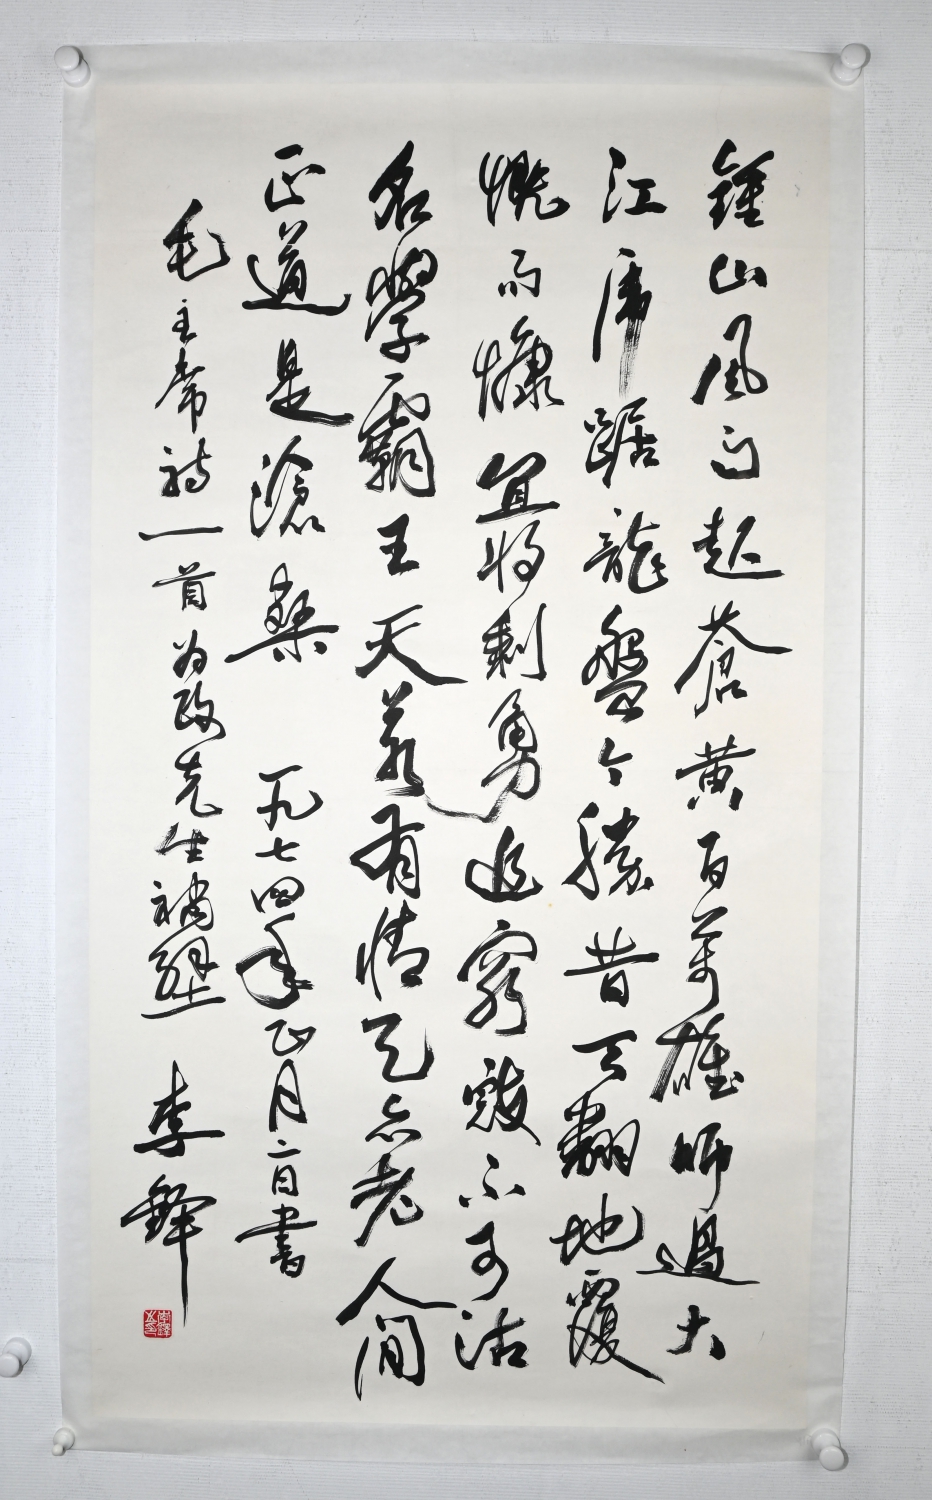 鍾山風雨起蒼黃百萬雄師過大
江虎踞龍盤今勝昔天翻地覆
慨而慷宜將剩勇追窮寇不可沽
名學霸王天若有情天亦老人間
正道是滄桑 一九七四年正月二日書
毛主席詩一首为政先生補壁 李鐸